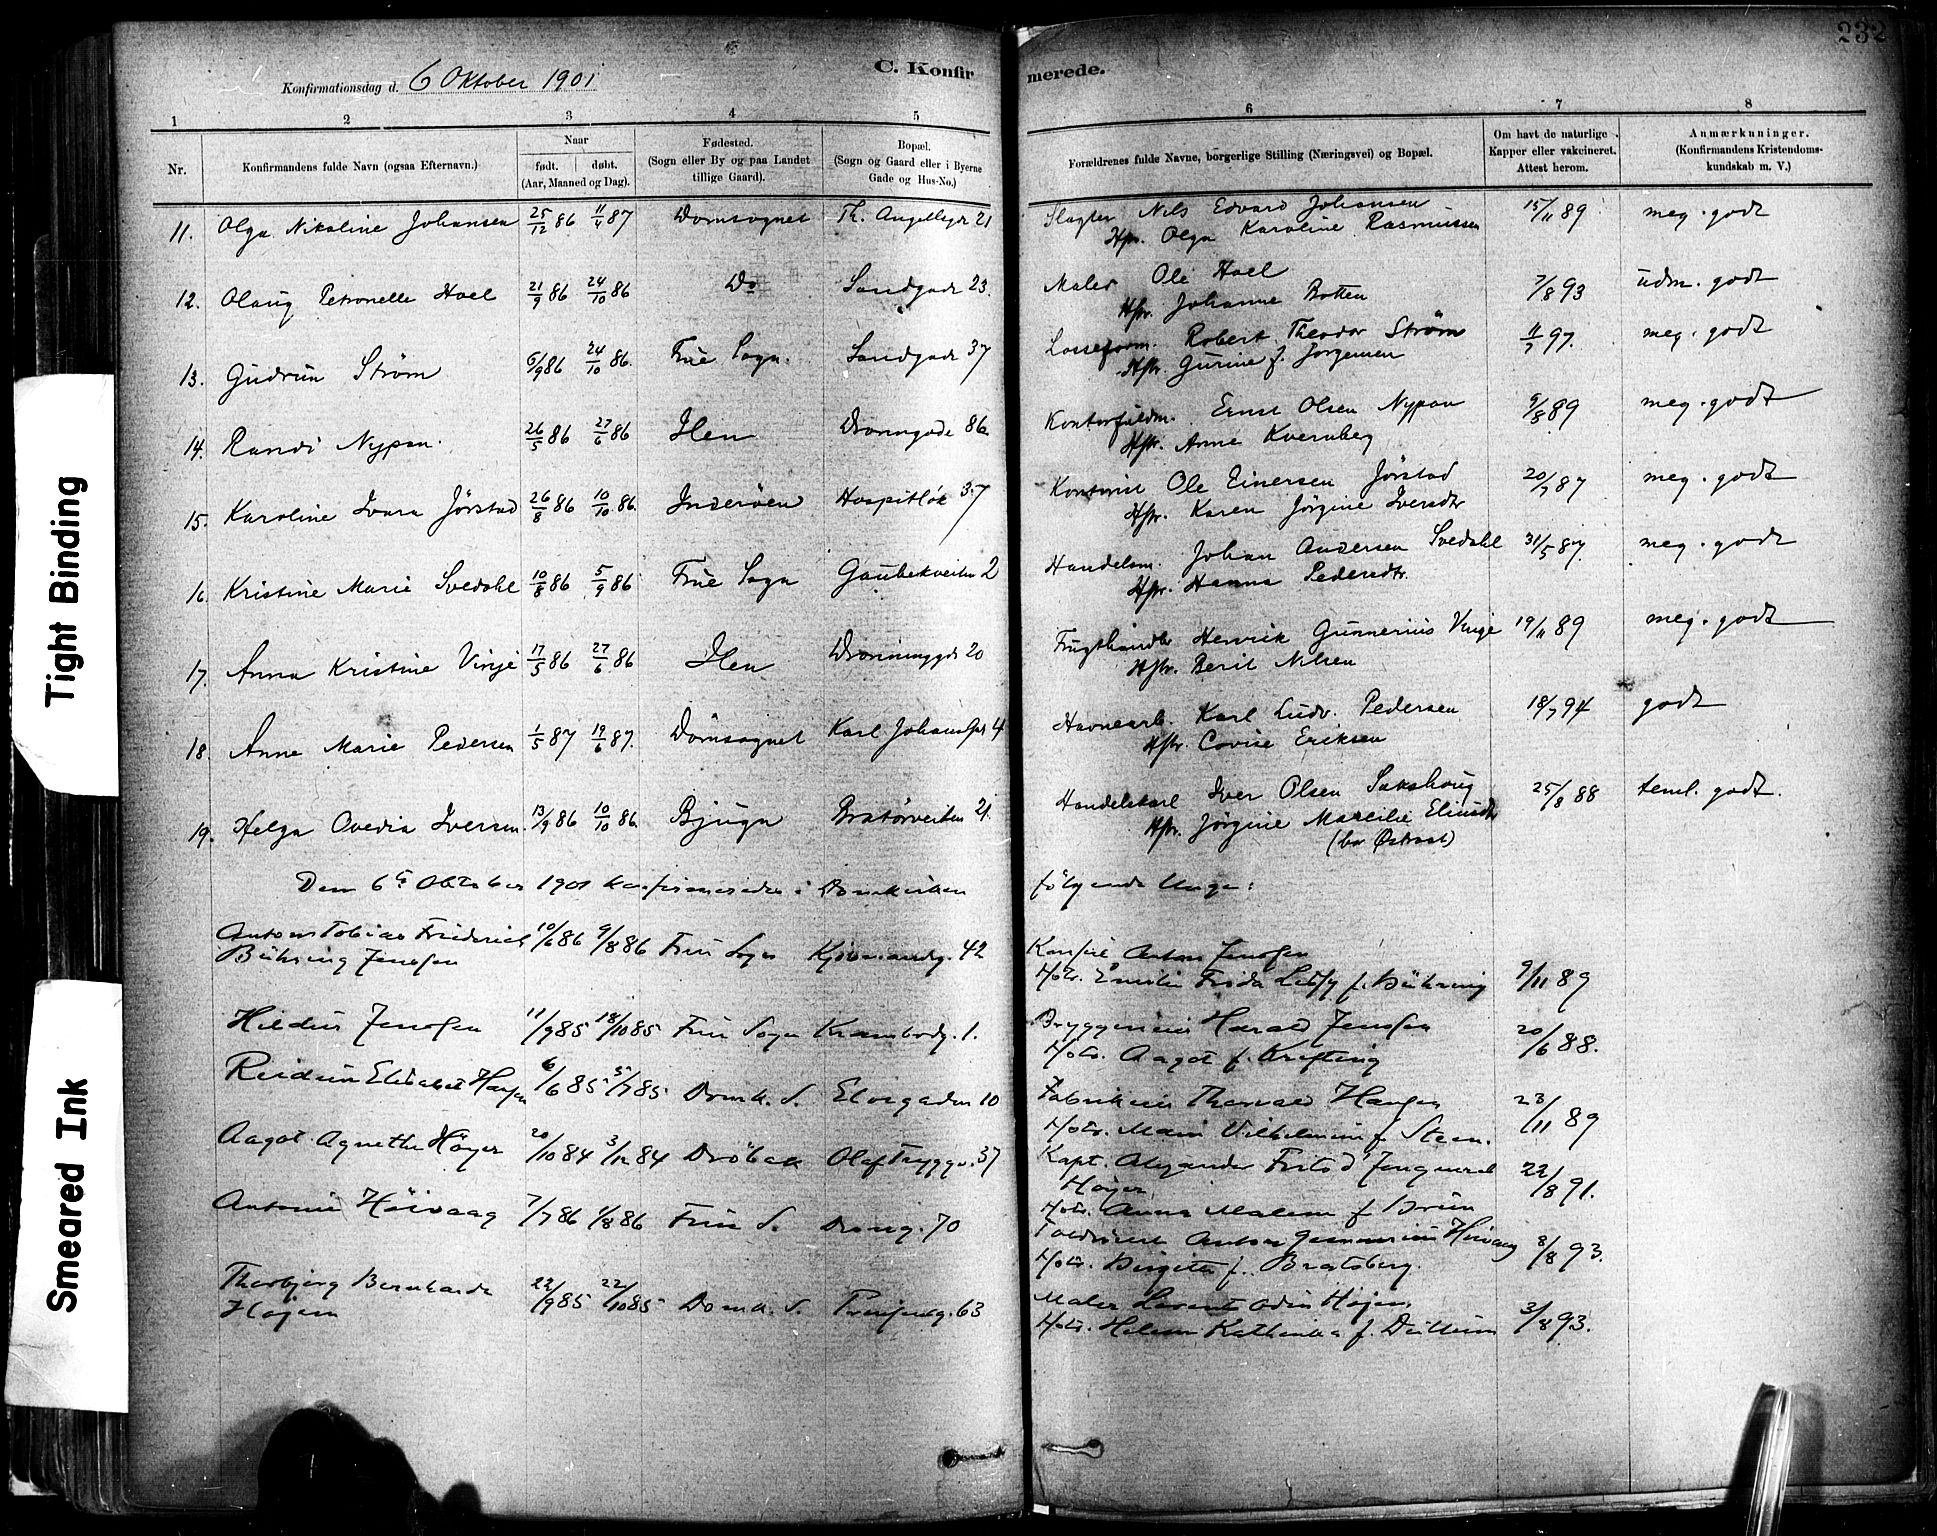 232
C. Konfirmerede.
Konfirmationsdag d. 6 Oktober 1901
1 2 3 4 5 6 7 8
Nr. Konfirmandens fulde Navn (ogsaa Efternavn.) Naar født. døbt. (Aar, Maaned og Dag). Fødested. (Sogn eller By og paa Landet tillige Gaard). Bopæl. (Sogn og Gaard eller i Byerne Gade og Hus-No.) Forældrenes fulde Navne, borgerlige Stilling (Næringsvei) og Bopæl. Om havt de naturlige Kopper eller vakcineret. Attest herom. Anmærkninger. (Konfirmandens Kristendomskundskab m. V.)
11. Olga Nikoline Johansen 25/12 86 11/4 87 Domsognet Th. Angellsgd 21 Slagter Nils Edvard Johansen 15/11 89 meg. godt
Hstr. Olga Karoline Rasmussen
12. Olaug Petronelle Hoel 21/9 86 24/10 86 Do Sandgade 23. Maler Ole Hoel 7/8 93 udm. godt
Hstr. Johanne Botten
13. Gudrun Strøm 6/9 86 24/10 86. Frue Sogn. Sandgade 37 Losseform. Robert Theodor Strøm 11/7 97. meg. godt
Hstr. Gurine f. Jørgensen
14. Randi Nypan. 26/5 86 27/6 86 Ilen Dronngade 86. Kontorfuldm. Ernst Olsen Nypan 9/8 89 meg. godt
Hstr. Anne Kvernberg
15. Karoline Ivara Jørstad 26/8 86 10/10 86. Inderøen Hospitløk 37 Kontorist Ole Einersen Jørstad 20/7 87 meg. godt
Hstr. Karen Jørgine Iversdtr
16. Kristine Marie Svedahl 10/8 86 5/9 86 Frue Sogn Gaubekveiten 2 Handelsm. Johan Andersen Svedahl 31/5 87. meg. godt
Hstr. Hanna Pedersdtr.
17. Anna Kristine Vinje 17/5 86 27/6 86 Ilen Dronninggd 20 Frugthandler Henrik Gunnerius Vinje 19/11 89 meg. godt
Hstr. Berit Nilsen
18. Anne Marie Pedersen 1/5 87 19/6 87. Domsognet Karl Johansgd 4 Havnearb. Karl Ludv. Pedersen 18/7 94 godt
Hstr. Eriksen
19. Helga Ovedia Iversen. 13/9 86 10/10 86. Bjugn Bratørveiten 21. Handelskarl Iver Olsen Sakshaug 25/8 88 teml. godt.
Hstr. Jørgine Marcilie
Den 6te Oktober 1901 konfirmeredes i Domkirken følgende Unge:
Anton Tobias Friederich 10/6 86 9/8 86 Frue Sogn Kjøbmandg. 42 Konsul Anton Jenssen 9/11 89
Bühring Jenssen Hstr. Emilie Frida f. Bühring
Hildur Jenssen 11/9 85 18/10 85 Frue Sogn Krambodg. 1. Bryggerieier Harald Jenssen 20/6 88.
Hstr. Aagot f. Krefting
Reidun Elisabet Hansen 6/6 85 5/7 85 Domk. S. Elvegaden 10 Fabrikeier Thorvald Hansen 23/11 89
Hstr. Marie Vilhelmine f. Steen.
Aagot Agnethe Høyer 20/10 84 3/12 84 Drøbak Olaf Tryggv. 37 Kapt. Alexander 22/8 91.
Høyer
Hstr. Anna f. Bruun
Antonie Høivaag 7/7 86 1/8 86 Frue S. Drong. 70 Anton Gunnerius Høivaag 8/8 93.
Hstr. Birgitte f. Bratsberg.
Thorbjørg Bernharda 22/9 85 22/10 85 Domk. S. Prinsensg. 63 Maler Odin Højem 3/8 93.
Højem Hstr. Helene Kathinka f.
Tight Binding
Smeared Ink